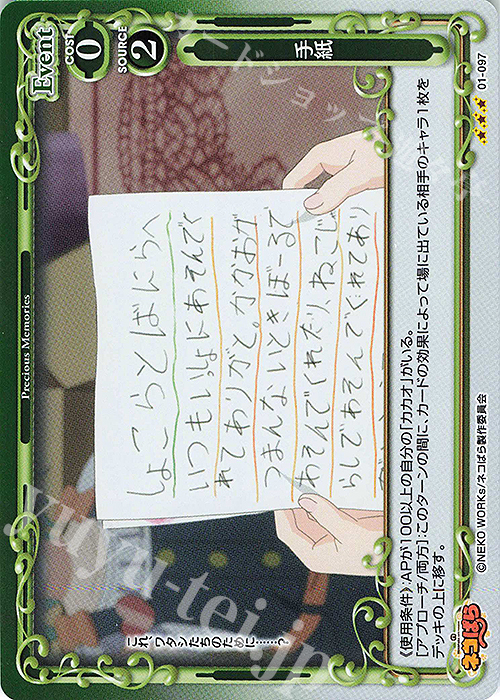 Event
COST
0
SOURCE
2
手紙
Precious Memories
しょこらとばにらへ
いつもいっしょにあそんでく
れてありがと。かかおが
つまんないときぼーるで
あそんでくれたり、ねこじゃ
らしであそんでくれてあり
これ、ワタシたちのために……?
《使用条件》:APが100以上の自分の「カカオ」がいる。
[アプローチ/両方]:このターンの間に、カードの効果によって場に出ている相手のキャラ1枚を
デッキの上に移す。
©NEKO WORKs/ネコぱら製作委員会
ネコぱら
01-097
yuyu-tei.jp